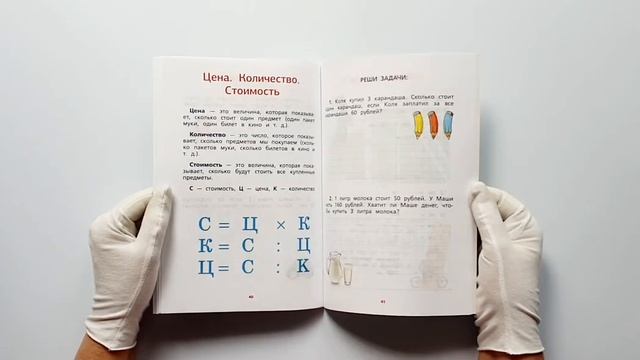 Цена. Количество.
Стоимость
Цена — это величина, которая показыва-
ет, сколько стоит один предмет (один пакет
муки, один билет в кино и т. д.).
Количество — это число, которое показы-
вает, сколько предметов мы покупаем (сколь-
ко пакетов муки, сколько билетов в кино и
т. д.).
Стоимость — это величина, которая пока-
зывает, сколько будут стоить все купленные
предметы.
С — стоимость, Ц — цена, К — количество
С = Ц × К
К = С : Ц
Ц = С : К
40
РЕШИ ЗАДАЧИ:
1. Коля купил 3 карандаша. Сколько стоит
один карандаш, если Коля заплатил за все
карандаши 60 рублей?
2. 1 литр молока стоит 50 рублей. У Маши
есть 160 рублей. Хватит ли Маше денег, что-
бы купить 3 литра молока?
41